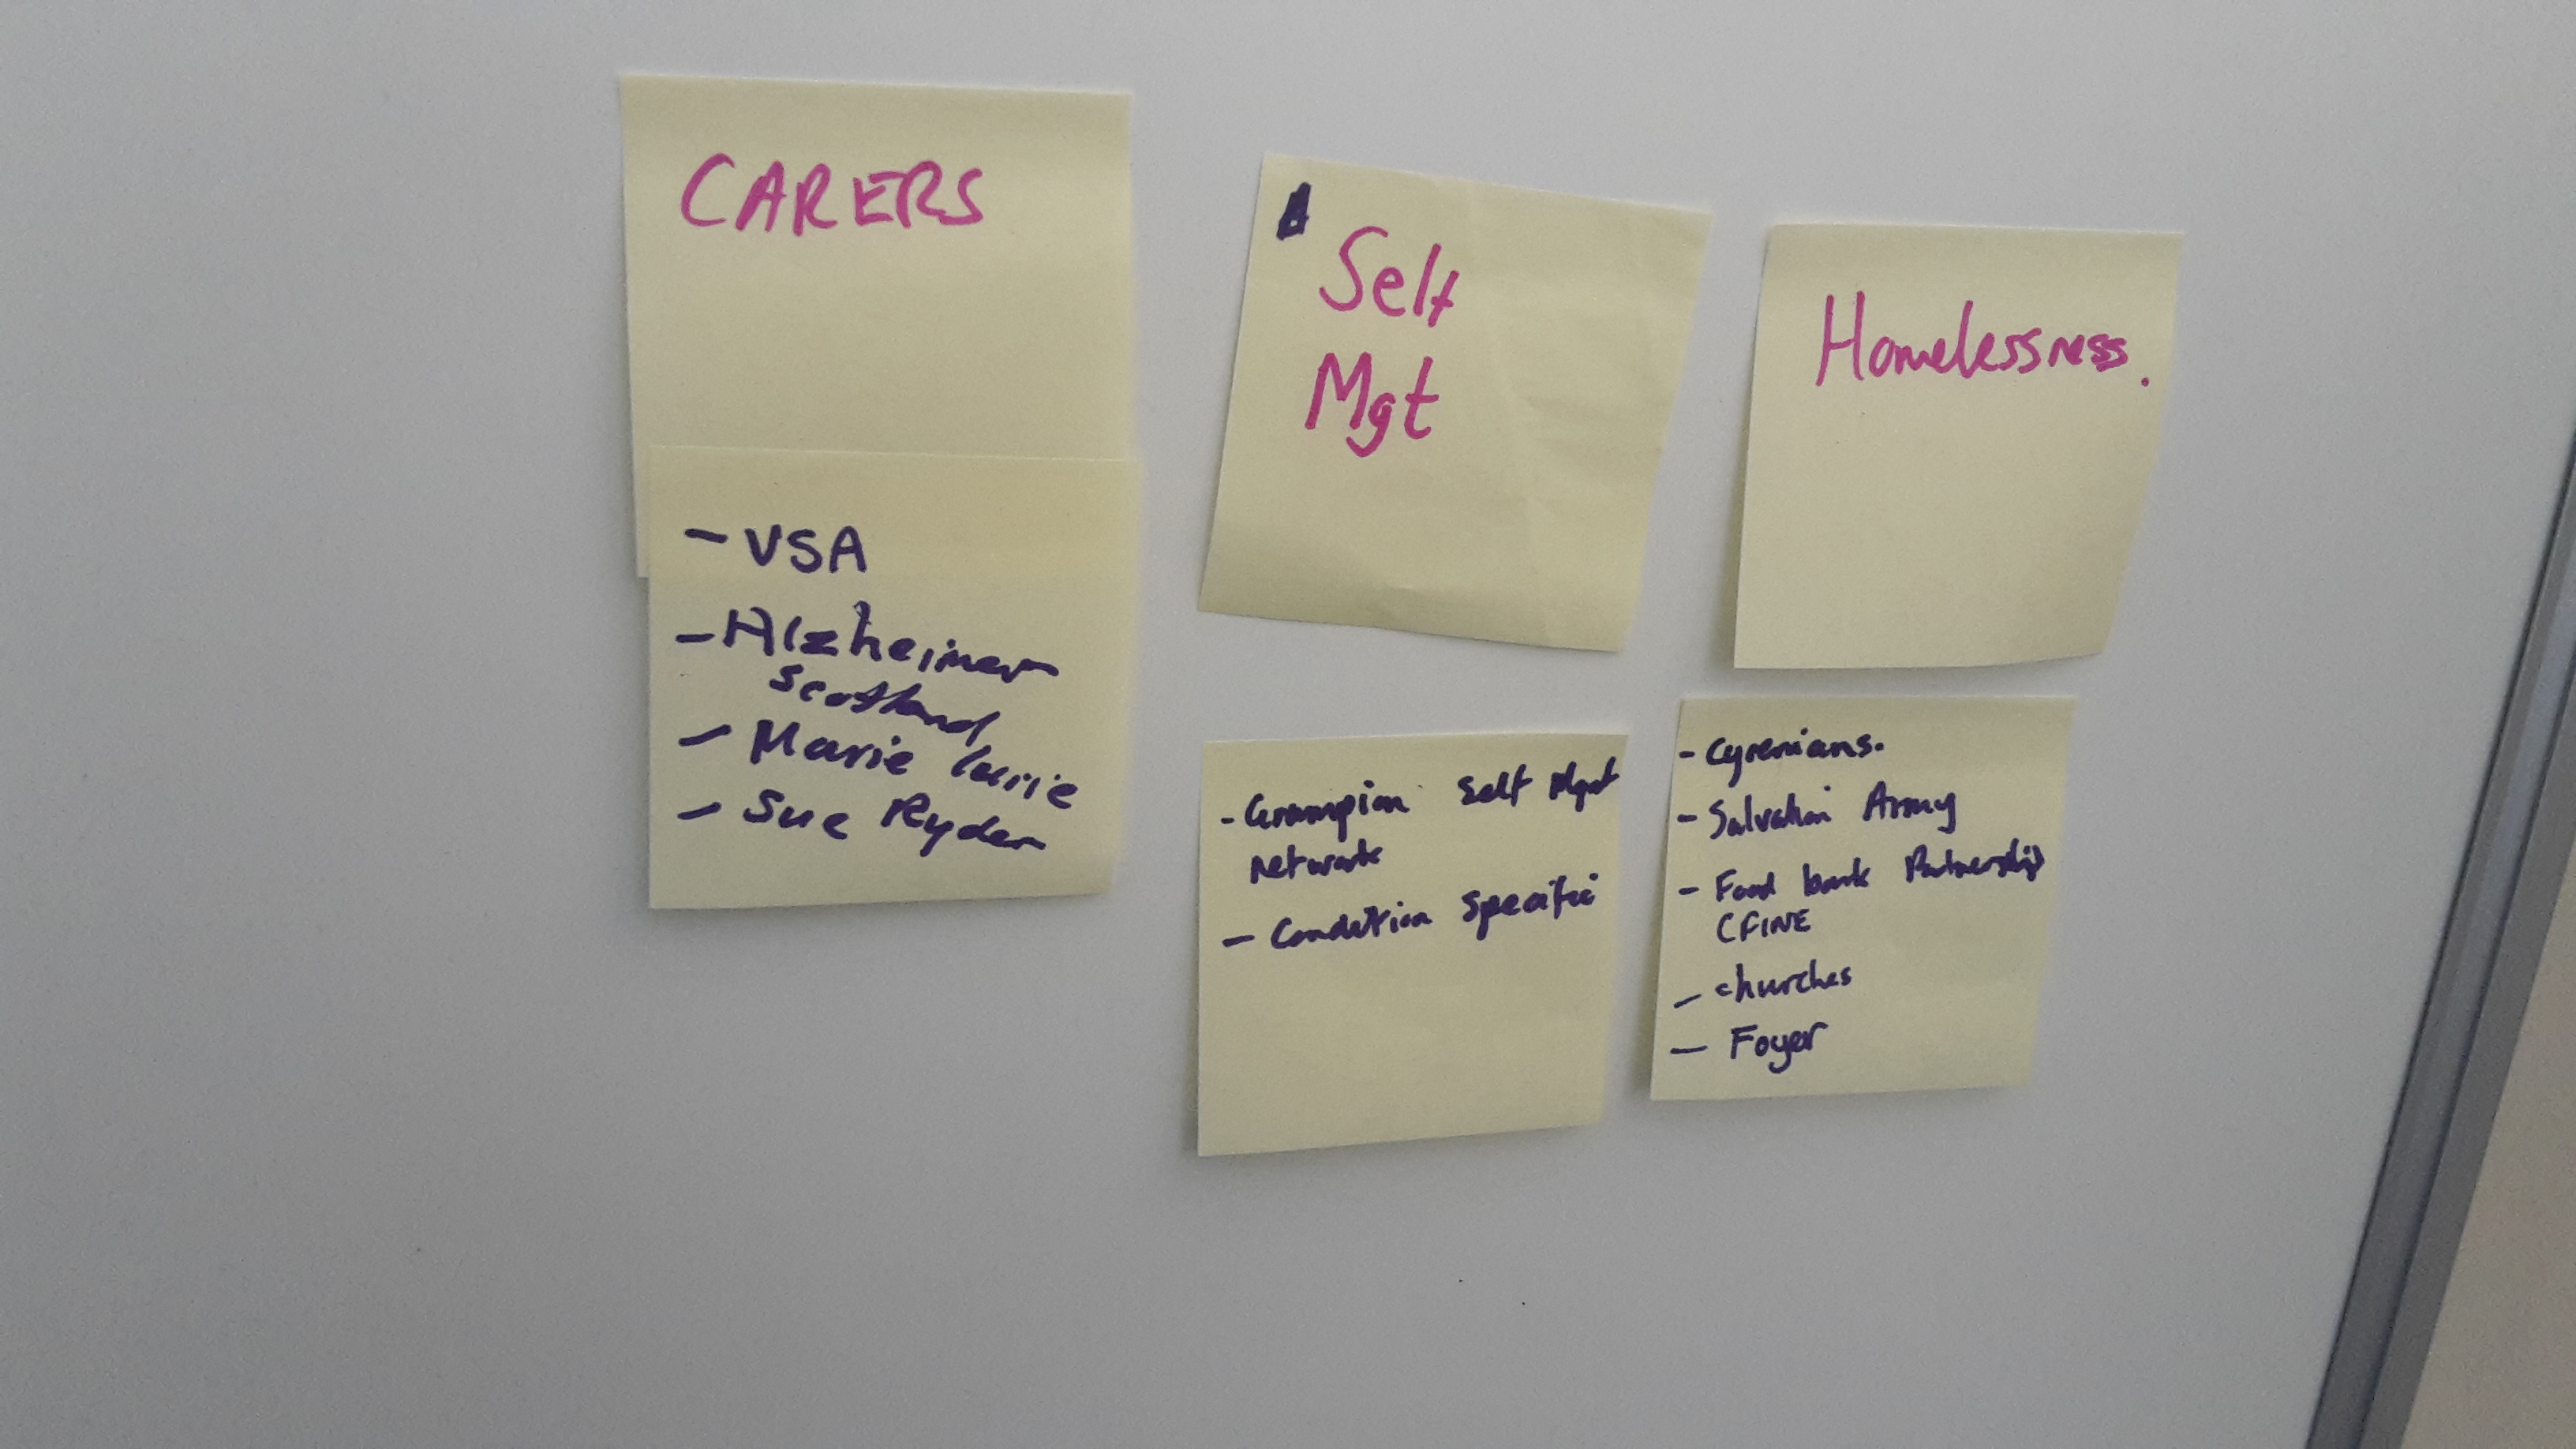 CARERS
- VSA
- Alzheimer
Scotland
- Marie Curie
- Sue Ryder
Self
Mgt
- Grampian Self Mgt
Network
- Condition Specific
Homelessness.
- Cyrenians.
- Salvation Army
- Food bank Partnership
CFINE
- churches
- Foyer